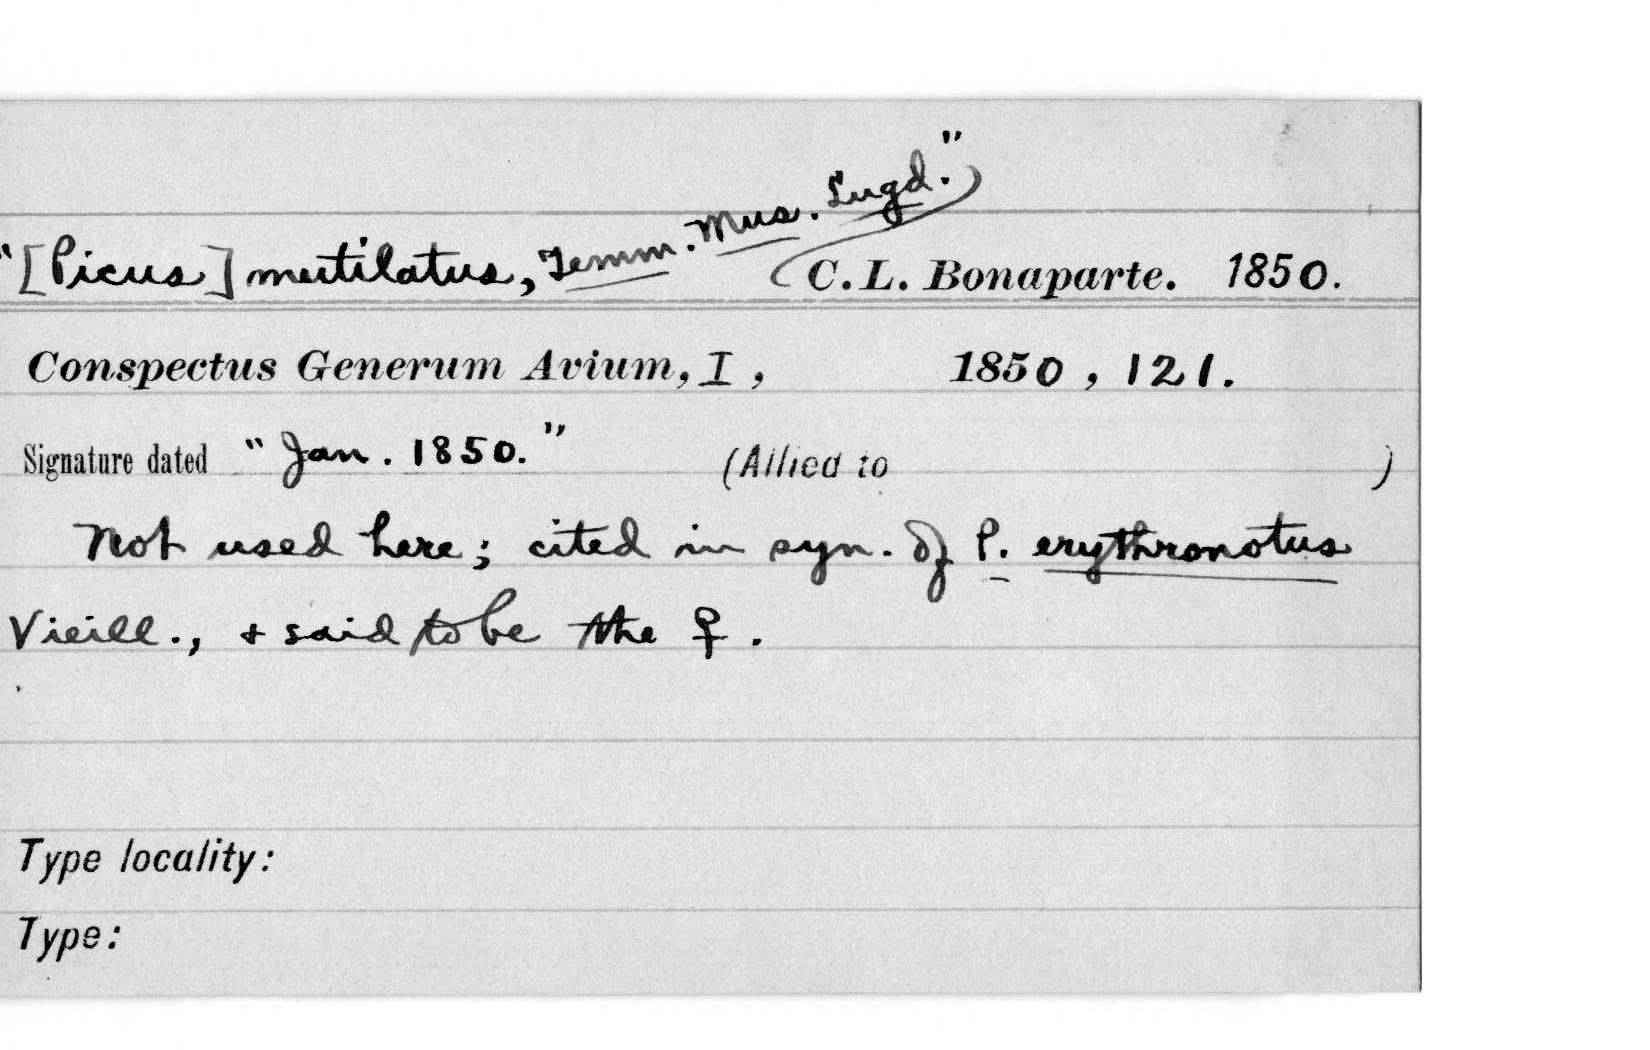 "[Picus] mutilatus, Temm. Mus. Lugd.")
(C. L. Bonaparte. 1850.
Conspectus Generum Avium, I, 1850, 121.
Signature dated "Jan. 1850." (Allied to )
Not used here; cited in syn. of P. erythronotus
Vieill., + said to be the ♀.
Type locality:
Type: